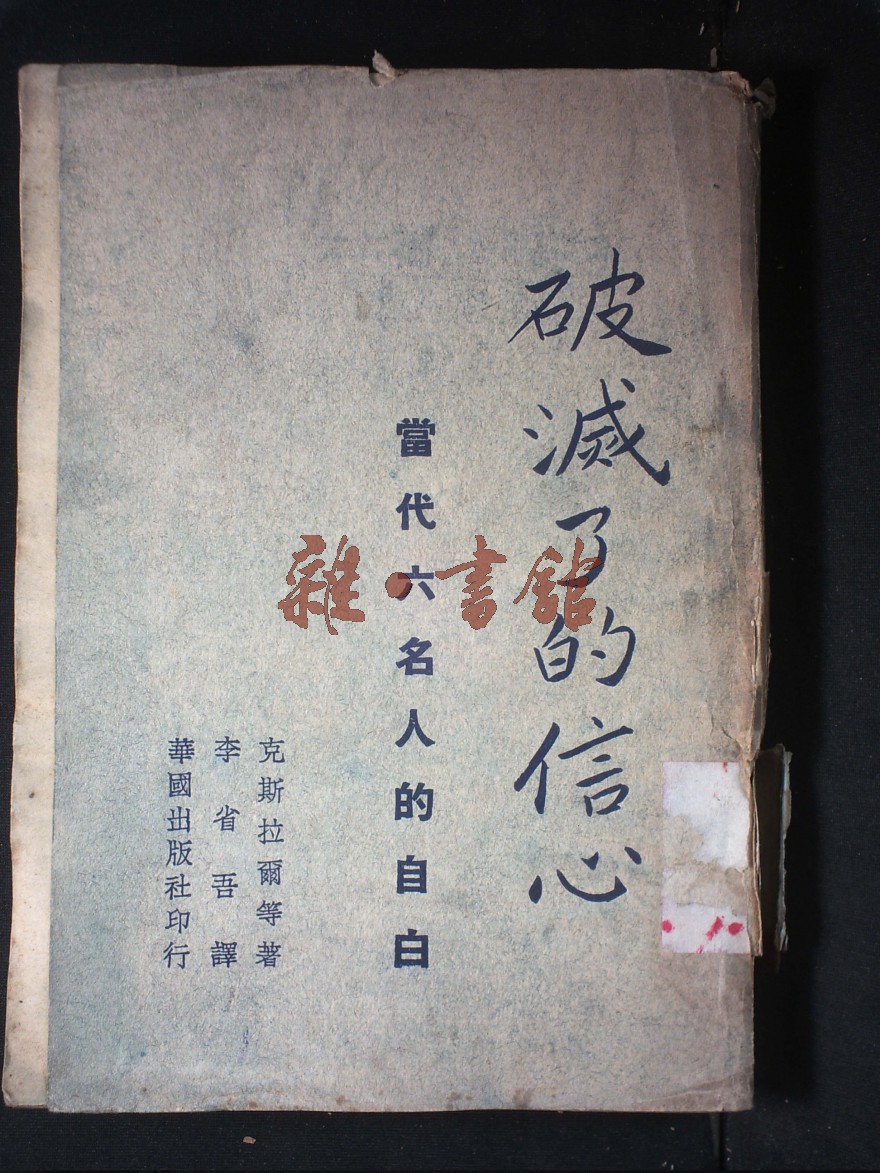 破滅了的信心
當代六名人的自白
克斯拉爾等著
李省吾譯
華國出版社印行
雜·書館